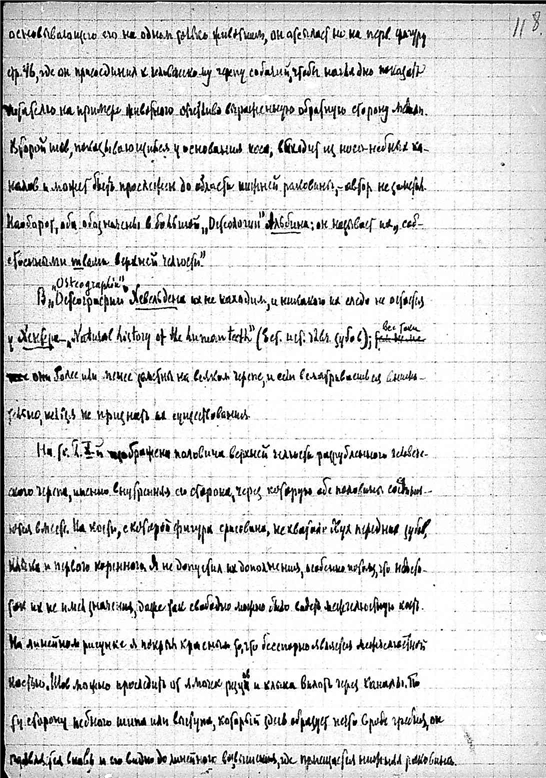 118.
основывающего его на одном только животном, он отсылает но на перв. фигуру
фр. 46, где он присоединил к человеческому черепу собачий, чтобы наглядно показать
читателю на примере животного отчетливо выраженную обратную сторону
Второй шов, показывающийся у основания носа, выходит из носо-небных ка-
налов и может быть прослежен до области нижней раковины, - автор не заметил.
Наоборот, оба обозначены в большой „Остеологии" Альбина: он называет их „соб-
ственными швами верхней челюсти."
„Osteographia"
В „Остеографии" Чезельдена их не находим, и никакого их следа не остается
у Хентера - „Natural history of the human teeth" (Ест. ист. челов. зубов);
они более или менее заметны на всяком черепе, и если всматриваешься внима-
тельно, нельзя не признать их существования.
На фр. I. изображена половина верхней челюсти разрубленного человече-
ского черепа, именно внутренняя его сторона, через которую обе половины соединя-
ются вместе. На кости, с которой фигура срисована, не хватало двух передних зубов,
клыка и первого коренного. Я не допустил их дополнения, особенно потому, что недоста-
ток их не имел значения, даже так свободно можно было видеть межчелюстную кость.
На линейном рисунке я покрыл красным то, что бесспорно является межчелюстной
костью. Шов можно проследить от ямочек резцов и клыка вплоть через каналы. По
ту сторону небного шипа или выступа, который здесь образует нечто вроде гребня, он
появляется вновь и его видно до линейного возвышения, где примыкает нижняя раковина.